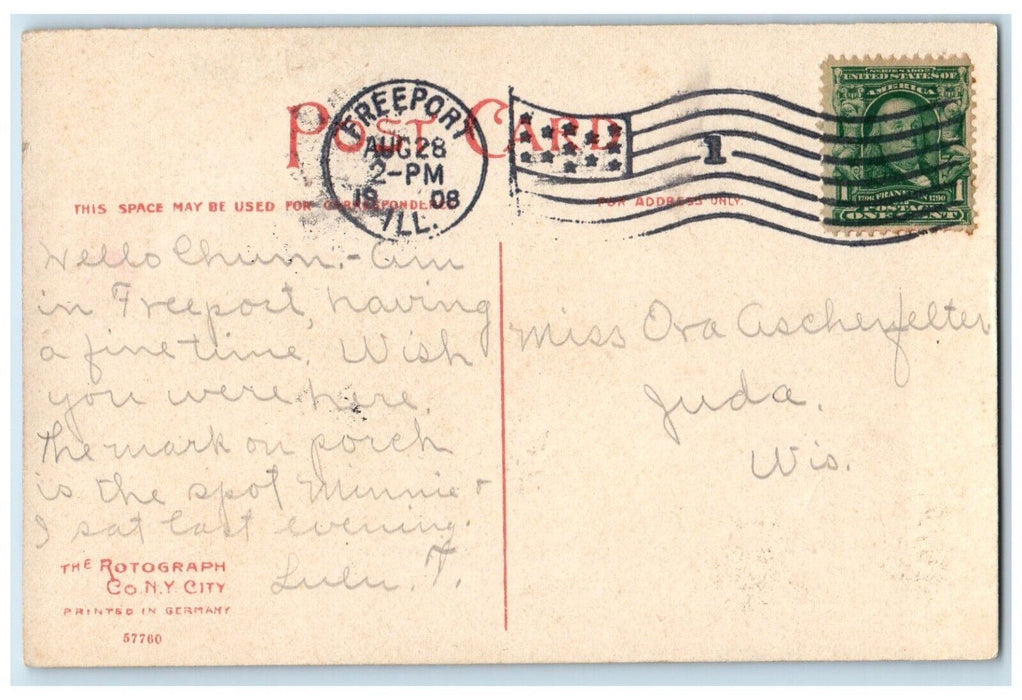 POST CARD
FREEPORT
AUG 28
2-PM
19 08
ILL.
1
SERIES 1902
UNITED STATES OF
AMERICA
1 FRANKLIN 1
1706 1790
POSTAGE
ONE CENT
THIS SPACE MAY BE USED FOR CORRESPONDENCE
FOR ADDRESS ONLY.
Hello Chum.- Am
in Freeport, having
a fine time. Wish
you were here.
The mark on porch
is the spot Minnie +
I sat last evening.
Lulu. T.
Miss Ora Aschenfelter
Juda.
Wis.
THE ROTOGRAPH
CO. N.Y. CITY
PRINTED IN GERMANY
57760